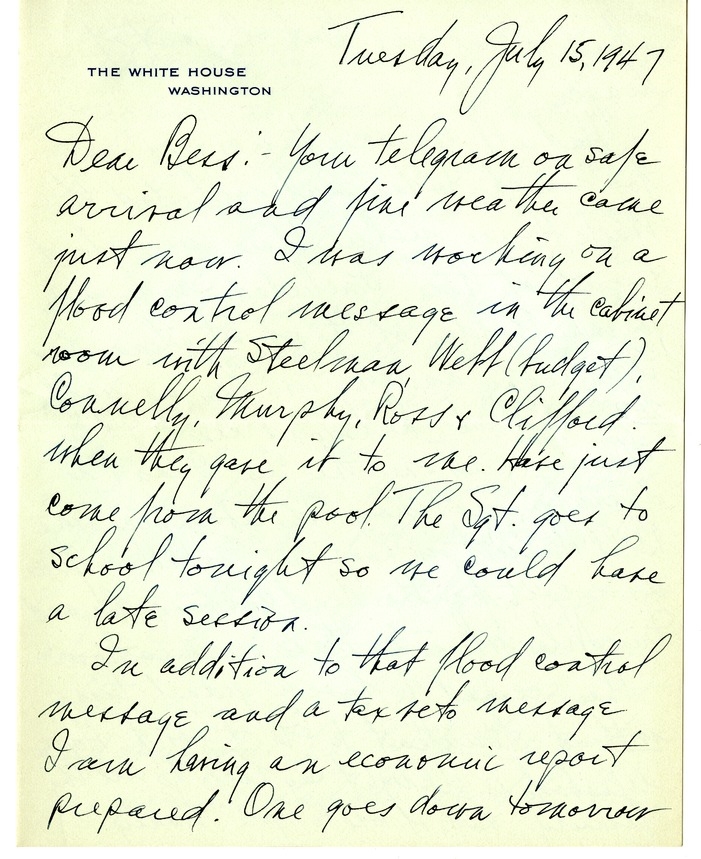 Tuesday, July 15, 1947
THE WHITE HOUSE
WASHINGTON
Dear Bess:- Your telegram on safe
arrival and fine weather came
just now. I was working on a
flood control message in the cabinet
room with Steelman, Webb (budget),
Connelly, Murphy, Ross & Clifford.
when they gave it to me. Have just
come from the pool. The Sgt. goes to
school tonight so we could have
a late session.
In addition to that flood control
message and a tax veto message
I am having an economic report
prepared. One goes down tomorrow